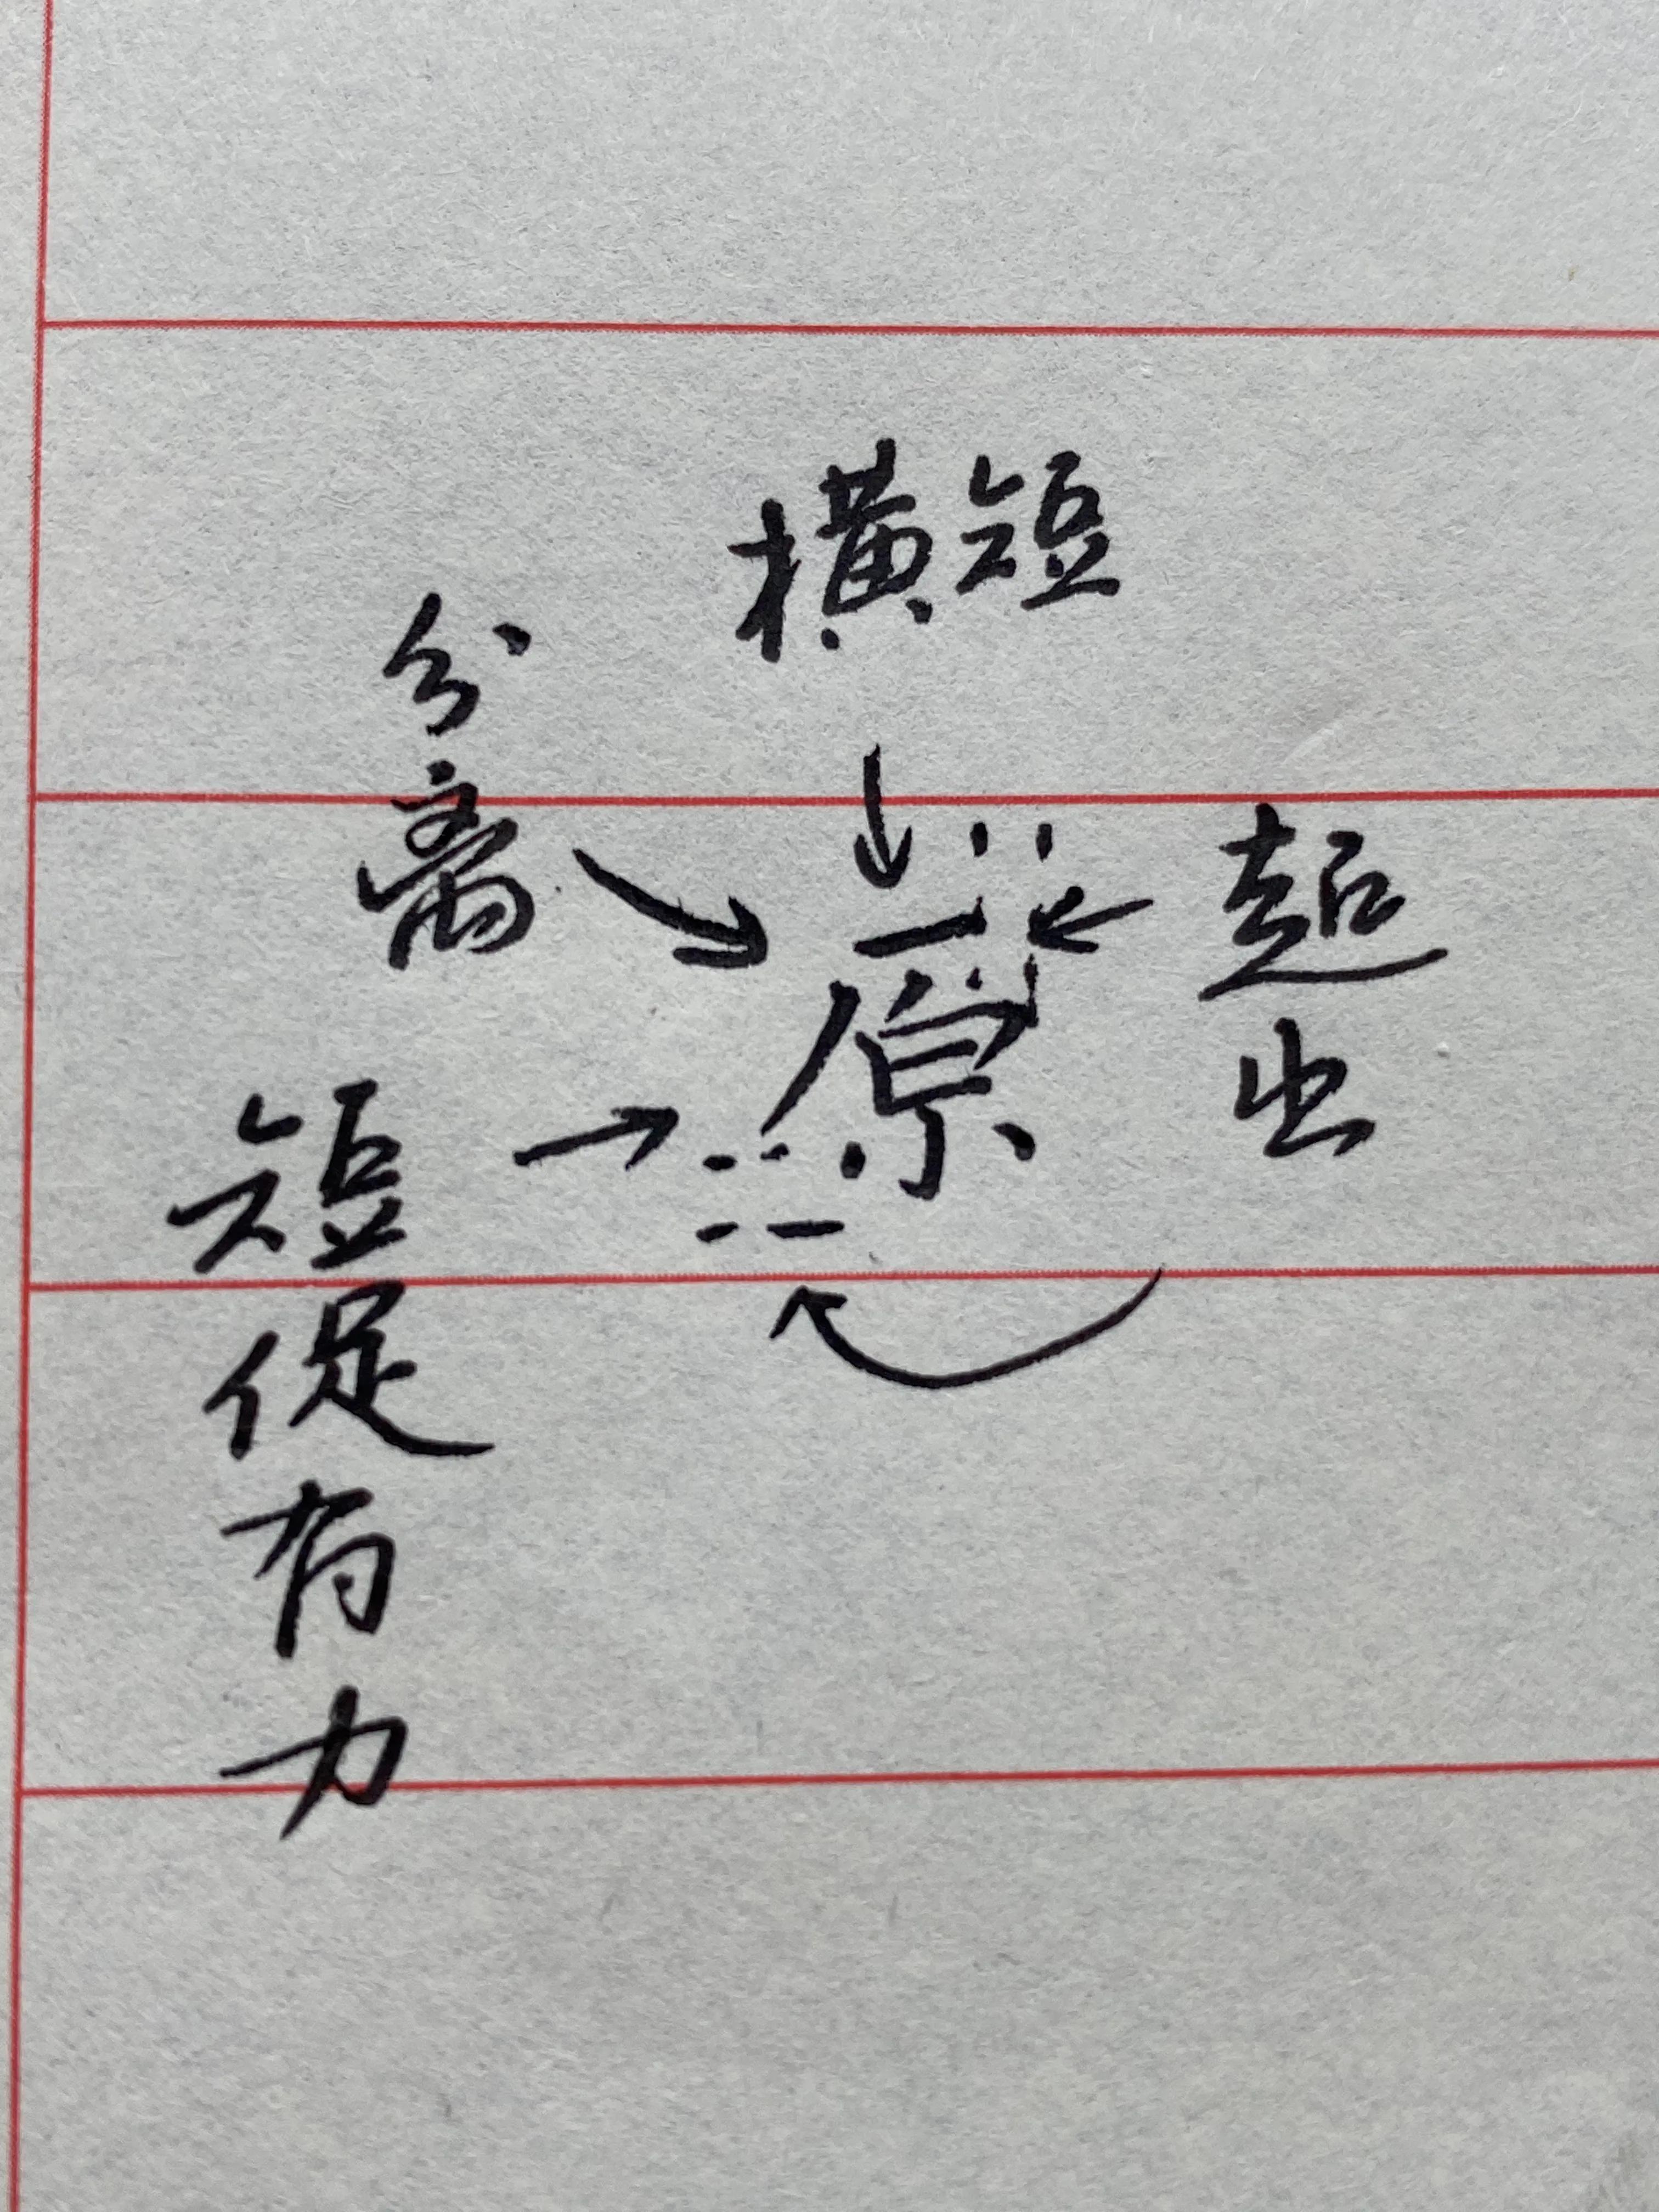 横短
分离
原
超出
短促有力